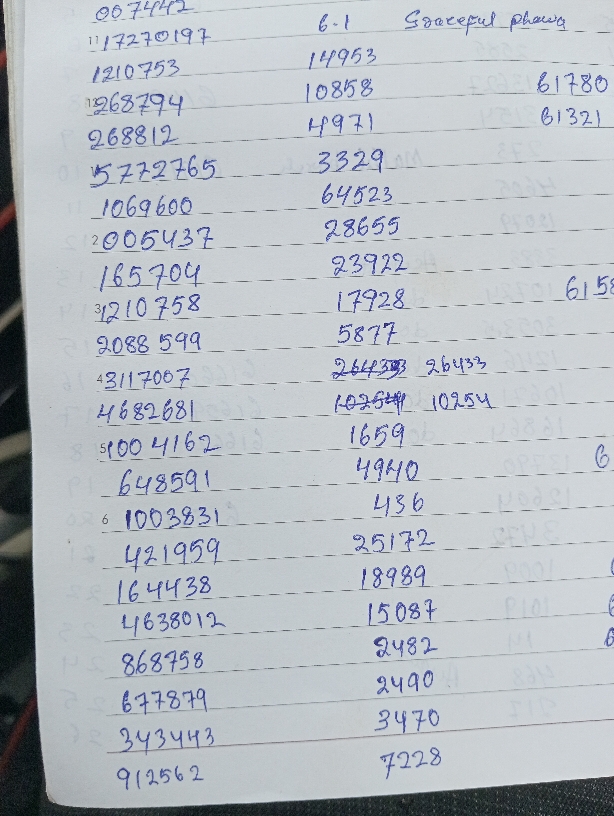 007442
11 17270197 6-1 Graceful phawa
1210753 14953
12 268794 10858 61780
268812 4971 61321
5772765 3329
1069600 64523
2 005437 28655
165704 23922
3 1210758 17928 6158
2088599 5877
4 3117007 26433 26433
4682681 10254 10254
5 1004162 1659
648591 4940 6
6 1003831 436
421959 25172
164438 18989
4638012 15087 6
868758 2482 6
677879 2490
343443 3470
912562 7228